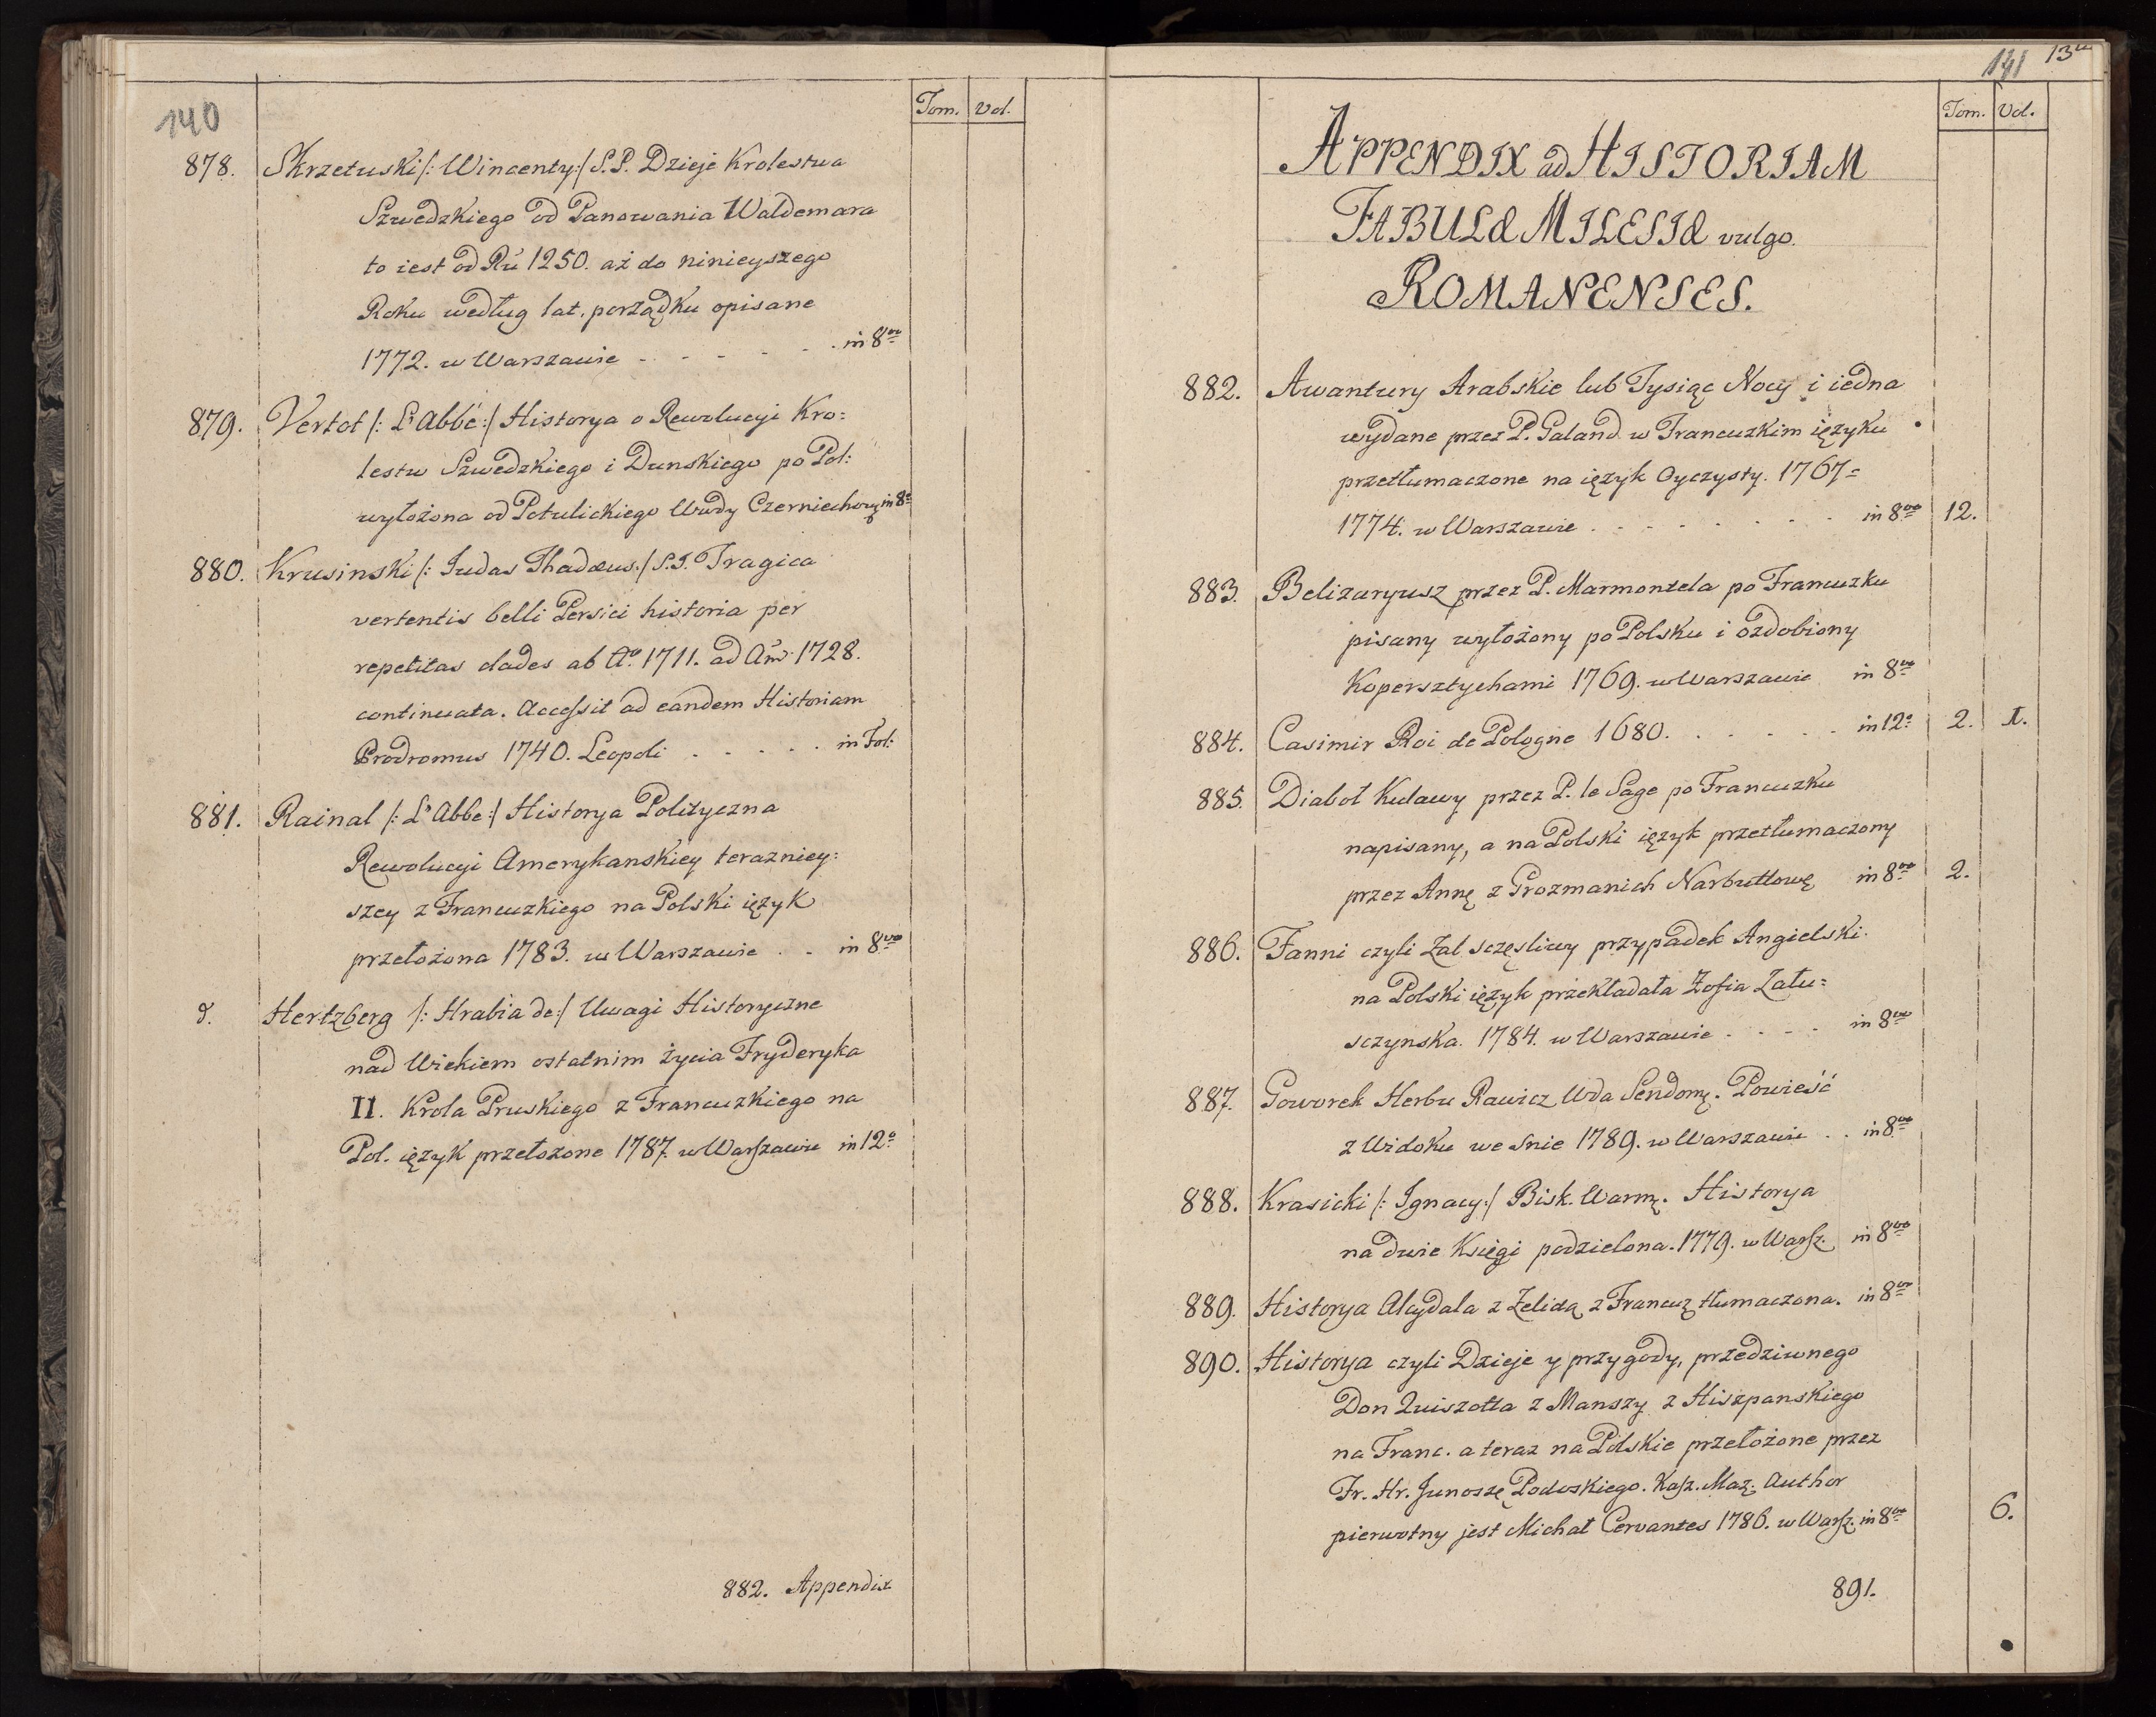 140
Tom. Vol.
878. Skrzetuski /: Wincenty :/ S.P. Dzieje Krolestwa
Szwedzkiego od Panowania Waldemara
to iest od Ru 1250. aż do ninieyszego
Roku według lat, porządku opisane
1772. w Warszawie - - - - - in 8vo
879. Vertot /: L'Abbé :/ Historya o Rewolucyi Kro=
lestw Szwedzkiego i Dunskiego po Pol:
wyłożona od Potulickiego Wwdy Czerniechow: in 8o
880. Krusinski /: Judas Thadæus :/ S.J. Tragica
vertentis belli Persici historia per
repetitas clades ab Ao. 1711. ad Am. 1728.
continuata. Accessit ad eandem Historiam
Prodromus 1740. Leopoli . - - - . in Fol:
881. Rainal /: L'Abbe :/ Historya Polityczna
Rewolucyi Amerykanskiey terazniey:
szey z Francuzkiego na Polski ięzyk
przełożona 1783. w Warszawie . - in 8vo
d. Hertzberg /: Hrabia de :/ Uwagi Historyczne
nad Wiekiem ostatnim życia Fryderyka
II. Krola Pruskiego z Francuzkiego na
Pol. ięzyk przełozone 1787. w Warszawie in 12o
882. Appendix
141 13
Tom. Vol.
APPENDIX ad HISTORIAM
FABULÆ MILESIÆ vulgo.
ROMANENSES.
882. Awantury Arabskie lub Tysiąc Nocy i iedna
wydane przez P. Galand w Francuzkim ięzyku
przetłumaczone na ięzyk Oyczysty. 1767=
1774. w Warszawie . - - - - - - in 8vo 12.
883. Belizaryusz przez P. Marmontela po Francuzku
pisany wyłożony po Polsku i ozdobiony
Kopersztychami 1769. w Warszawie in 8vo
884. Casimir Roi de Pologne 1680. . . . . . in 12o 2. I.
885. Diaboł Kulawy przez P. le Sage po Francuzku
napisany, a na Polski ięzyk przetłumaczony
przez Annę z Grozmanich Narbuttowę in 8vo 2.
886. Fanni czyli Zal sczęsliwy przypadek Angielski.
na Polski ięzyk przekładała Zofia Zału=
sczynska. 1784. w Warszawie . - - - in 8vo
887. Goworek Herbu Rawicz Wda Sendom. Powieść
z Widoku we Snie 1789. w Warszawie . . in 8vo
888. Krasicki /: Ignacy :/ Bisk. Warm. Historya
na dwie Księgi podzielona. 1779. w Warsz. in 8vo
889. Historya Alcydala z Zelidą z Francuz tłumaczona. in 8vo
890. Historya czyli Dzieje y przygody, przedziwnego
Don Quiszotta z Manszy z Hiszpanskiego
na Franc. a teraz na Polskie przełożone przez
Fr. Hr. Junoszę Podoskiego. Kasz. Maz. Author
pierwotny jest Michał Cervantes 1786. w Warsz. in 8vo 6.
891.